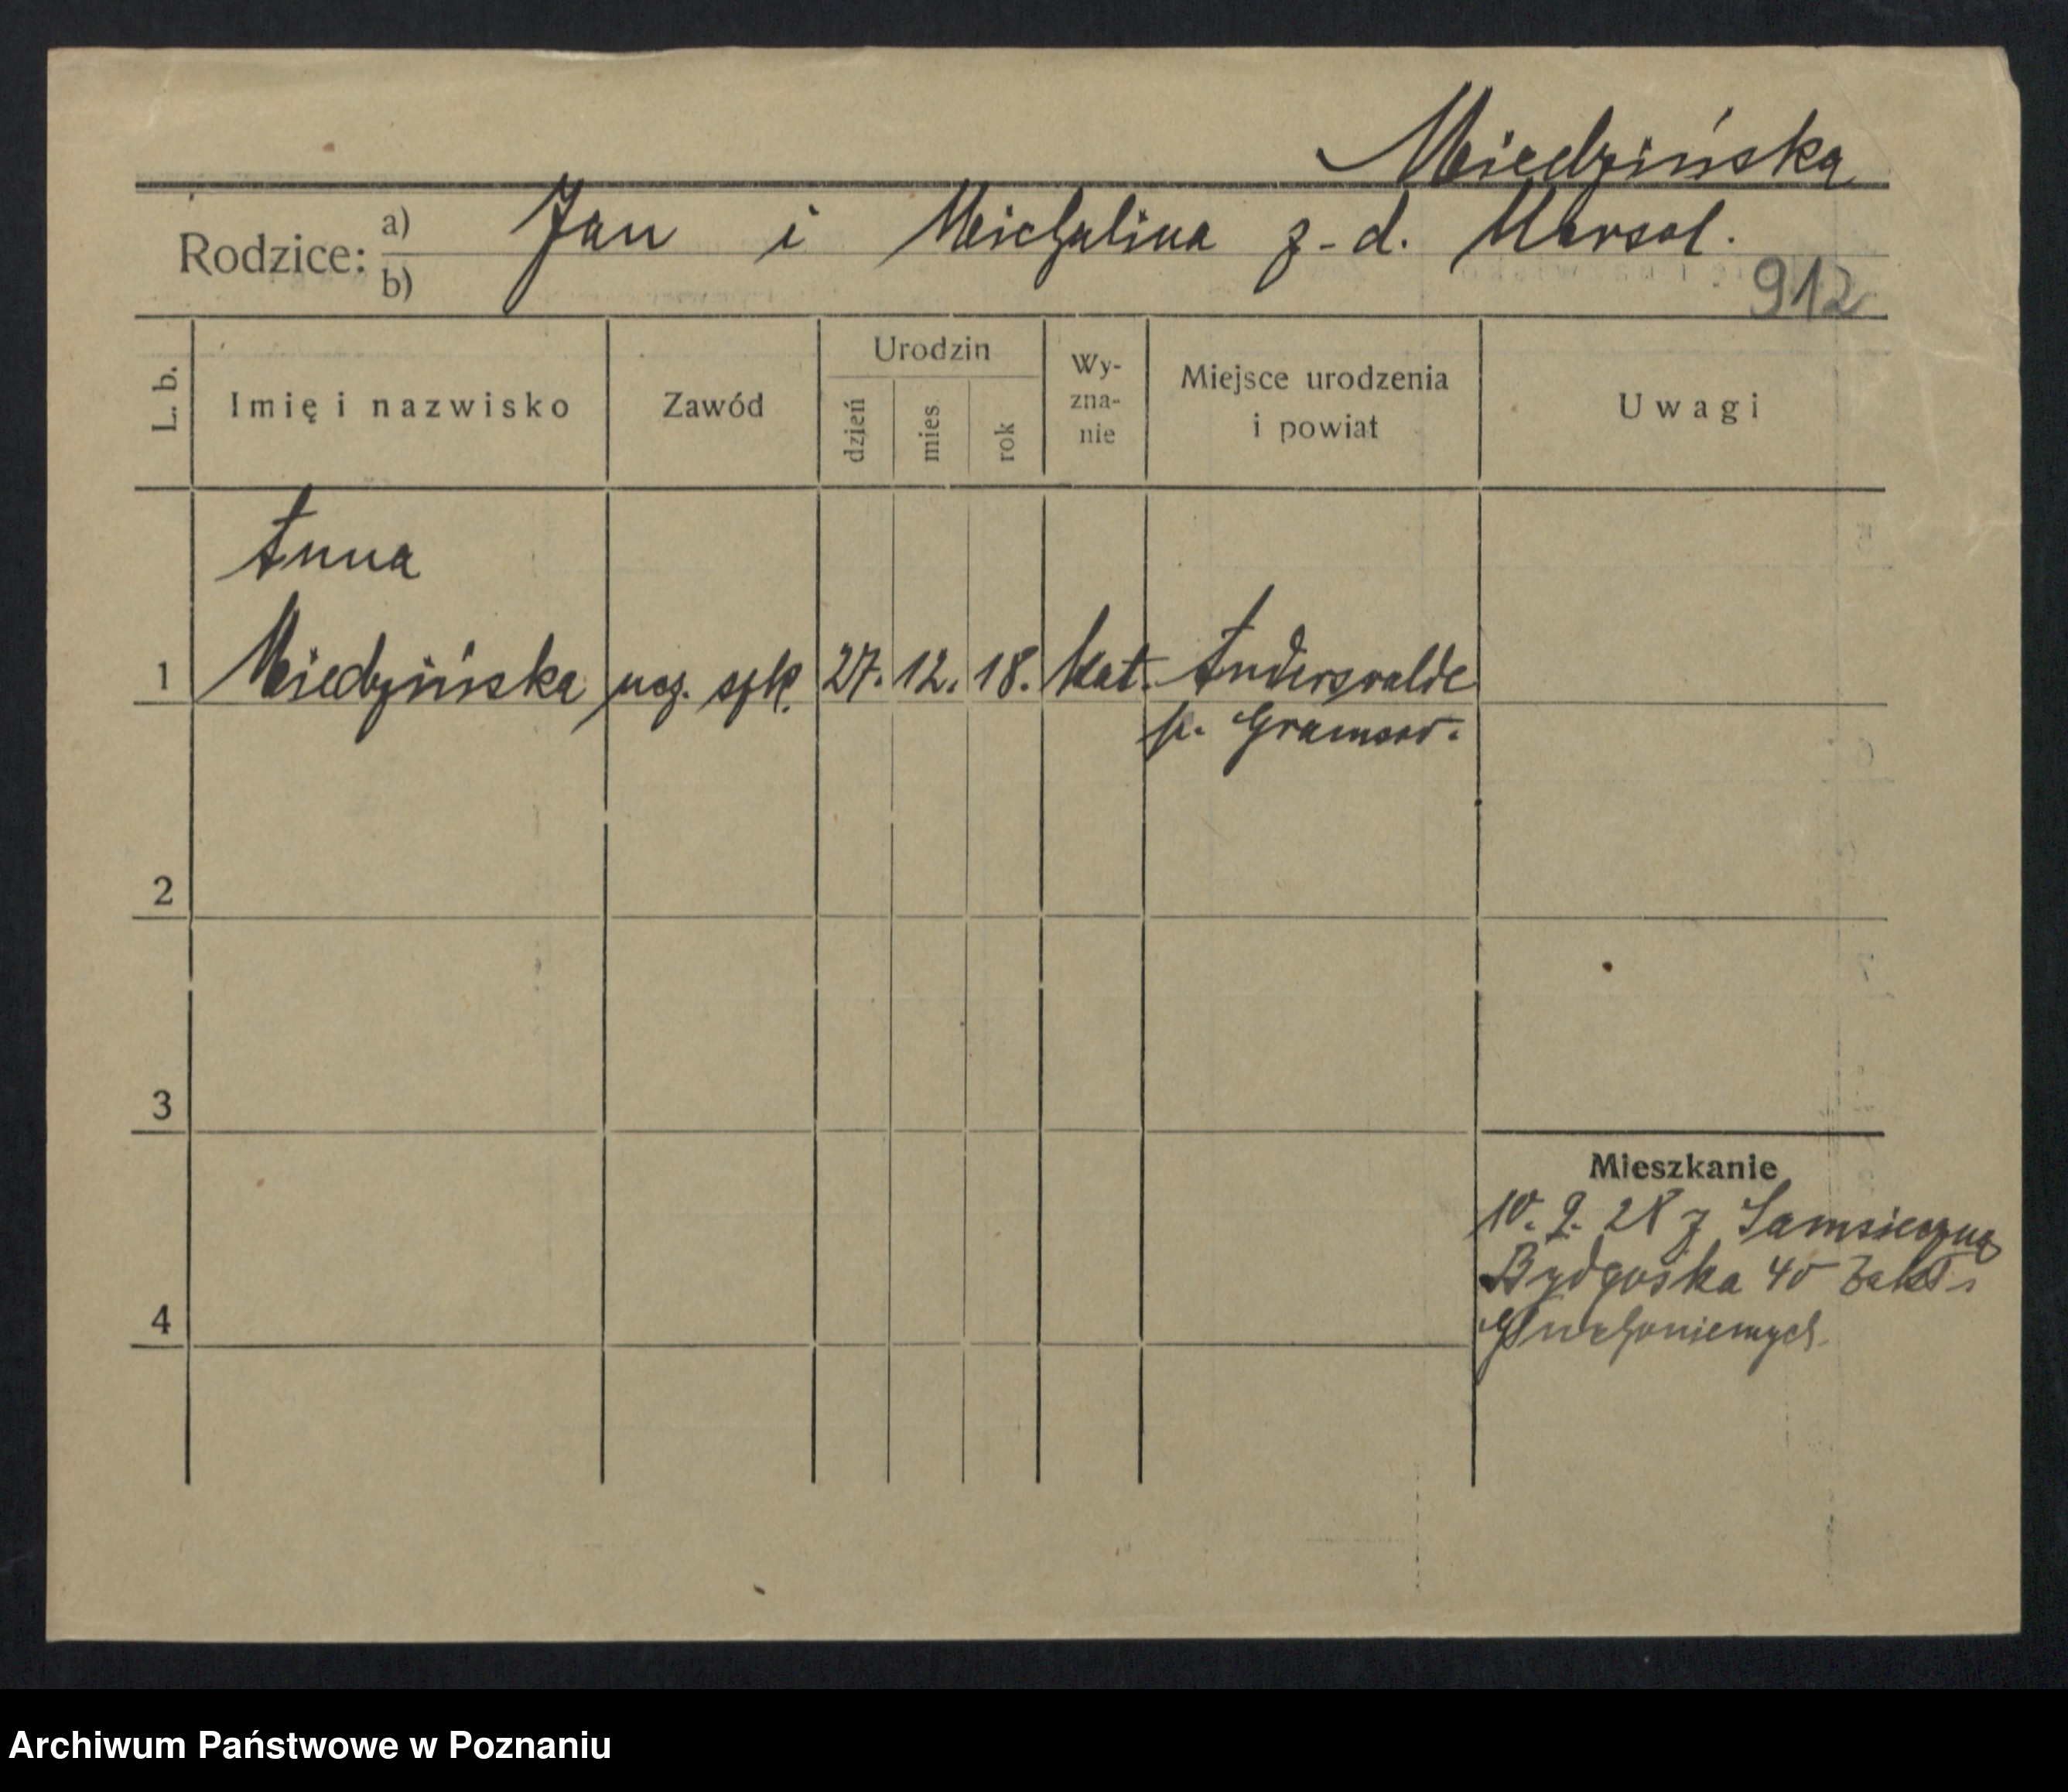 Miedzińska
Rodzice: a) Jan i Michalina z-d. Marsol.
b)
912
L. b. Imię i nazwisko Zawód Urodzin dzień mies. rok Wy-zna-nie Miejsce urodzenia i powiat Uwagi
Anna
1 Miedzyińska ucz. szk. 27. 12. 18. kat. Anderswalde
p. Gramsd.
2
3
Mieszkanie
10. 9. 28 z Samsieczna
Bydgoska 40 Zakł.
4 Głuchoniemych.
Archiwum Państwowe w Poznaniu